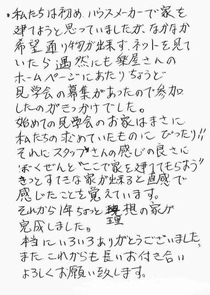 ・私たちは初め、ハウスメーカーで家を
建てようと思っていましたが、なかなか
希望通り物が出来ず、ネットを見て
いたら偶然にも楽屋さんの
ホームページにあたりちょうど
見学会の募集があったので参加
したのがきっかけでした。
始めての見学会のお家はまさに
私たちの求めていたものにぴったり!!
それにスタッフさんの感じの良さに
ばくぜんと"ここで家を建てもらおう"
きっとすてきな家が出来ると直感で
感じたことを覚えています。
それから1年ちょっと理想の家が
完成しました。
本当にいろいろありがとうございました。
またこれからも長いお付き合い
よろしくお願い致します。